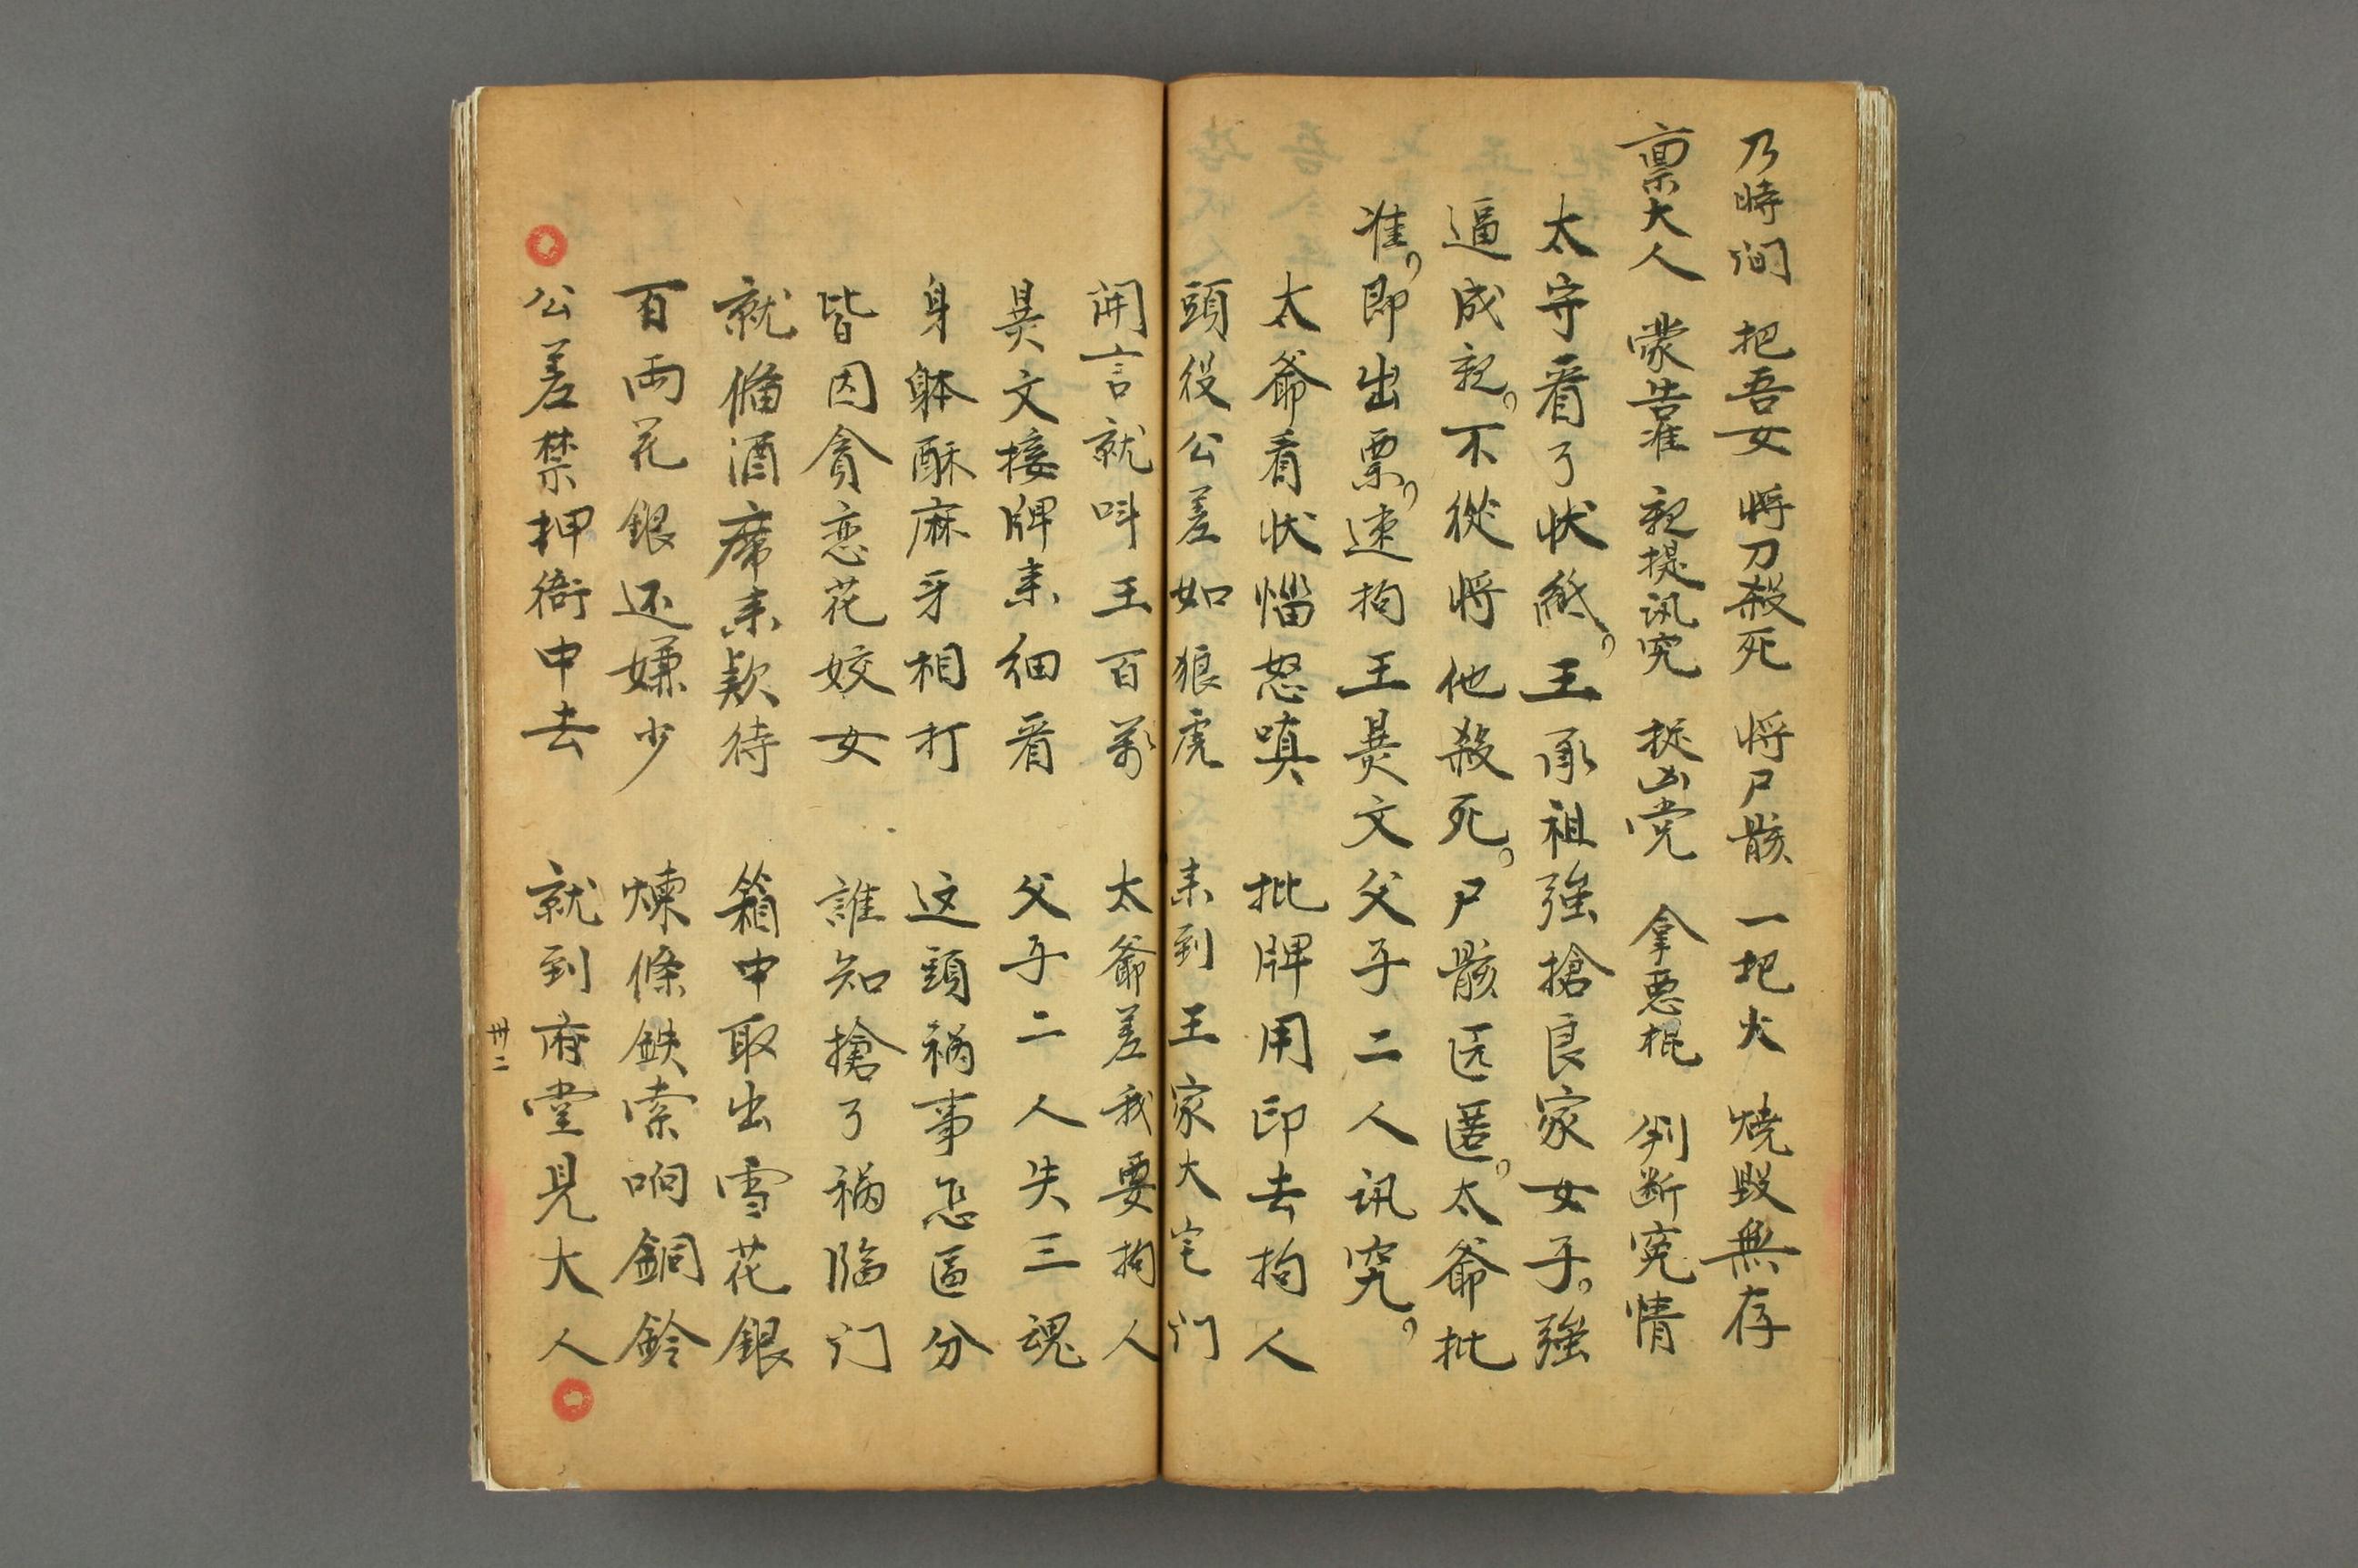 乃時间 把吾女 将刀殺死 将尸骸 一把火 燒毀無存
禀大人 蒙告准 親提訊究 捉凶党 拿惡棍 判断寃情
太守看了状紙。王承祖強搶良家女子。強
逼成親。不從将他殺死。尸骸匿。太爺批
准。即出票。速拘王文父子二人訊究。
太爺看状惱怒嗔 批牌用印去拘人
頭役公差如狼虎 来到王家大宅门
開言就呌王百萬 太爺差我要拘人
文接牌来细看 父子二人失三魂
身躰酥麻牙相打 这頭禍事怎區分
皆因貪恋花姣女 誰知搶了禍臨门
就偹酒席来款待 箱中取出雪花銀
百両花銀还嫌少 煉條鉄索响銅鈴
公差禁押衙中去 就到府堂見大人
卅二